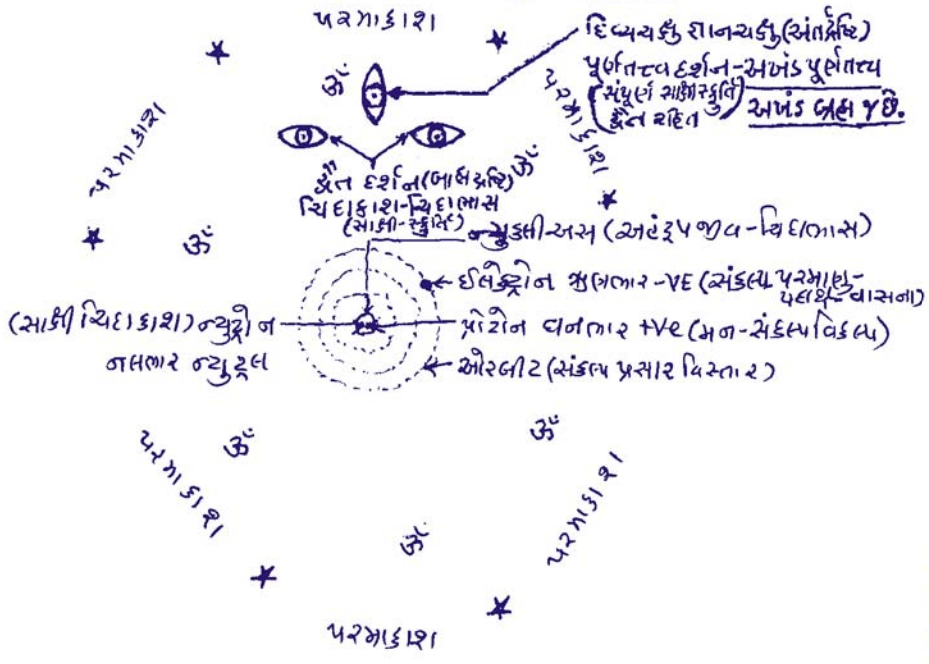 પરમાકાશ
દિવ્યચક્ષુ જ્ઞાનચક્ષુ (અંતર્દ્રષ્ટિ)
પૂર્ણતત્ત્વ દર્શન-અખંડ પૂર્ણતત્ત્વ
(સંપૂર્ણ સાક્ષી સ્ફુર્તિ)
દ્વૈત રહિત
અખંડ બ્રહ્મ જ છે.
ૐ
પરમાકાશ
પરમાકાશ
દ્વૈત દર્શન (બાહ્ય દ્રષ્ટિ)
ૐ
ચિદાકાશ-ચિદાભાસ
(સાક્ષી-સ્ફુર્તિ)
ૐ
ન્યુકલીઅસ (અહંરૂપ જીવ-ચિદાભાસ)
ઈલેક્ટ્રોન ઋણભાર -VE (સંકલ્પ પરમાણુ-
વાસના)
(સાક્ષી ચિદાકાશ) ન્યુટ્રોન
પ્રોટોન ધનભાર +Ve (મન-સંકલ્પ વિકલ્પ)
ન્યુટ્રલ
ઓરબીટ (સંકલ્પ પ્રસાર વિસ્તાર)
ૐ
ૐ
પરમાકાશ
પરમાકાશ
ૐ
પરમાકાશ